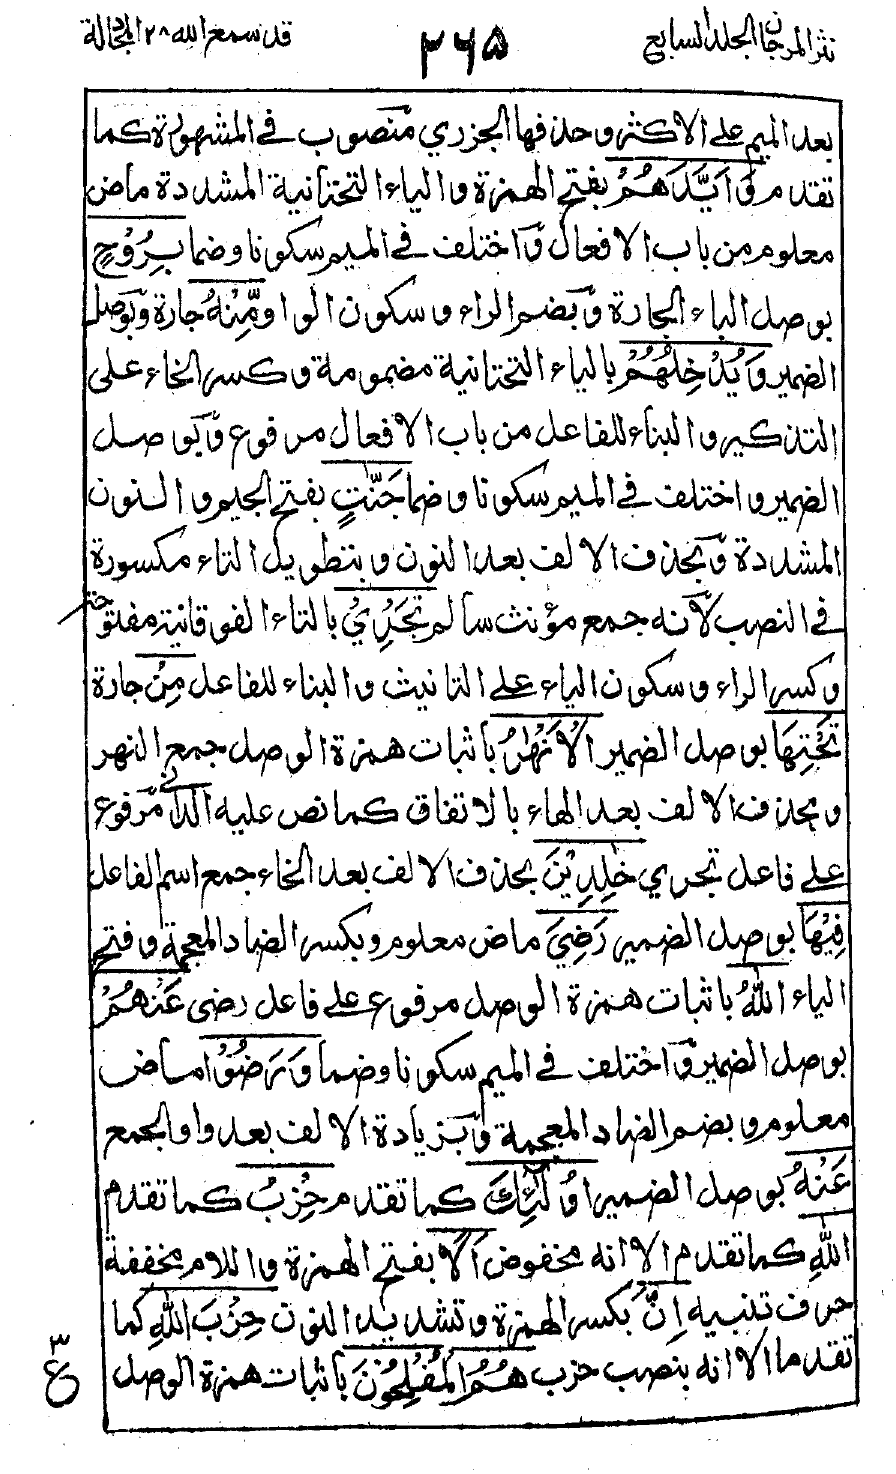 نثر المرجان الجلد السابع
٢٦٥
قد سمع الله ٢٨ المجادلة
بعد الميم على الاكثر وحذفها الجزري منصوب في المشهورة كما
تقدم وَاَيَّدَهُمْ بفتح الهمزة والياء التحتانية المشددة ماض
معلوم من باب الافعال واختلف في الميم سكونا وضما بِرُوْحٍ
بوصل الباء الجارة وبضم الراء وسكون الواو مِّنْهُ جارة وبوصل
الضمير وَيُدْخِلُهُمْ بالياء التحتانية مضمومة وكسر الخاء على
التذكير والبناء للفاعل من باب الافعال مرفوع وبوصل
الضمير واختلف في الميم سكونا وضما جَنّٰتٍ بفتح الجيم والنون
المشددة وبحذف الالف بعد النون وبتطويل التاء مكسورة
في النصب لانه جمع مؤنث سالم تَجْرِيْ بالتاء الفوقانية مفتوحة
وكسر الراء وسكون الياء على التانيث والبناء للفاعل مِنْ جارة
تَحْتِهَا بوصل الضمير الْاَنْهٰرُ باثبات همزة الوصل جمع النهر
وبحذف الالف بعد الهاء بالاتفاق كما نص عليه الداني مرفوع
على فاعل تجري خٰلِدِيْنَ بحذف الالف بعد الخاء جمع اسم الفاعل
فِيْهَا بوصل الضمير رَضِيَ ماض معلوم وبكسر الضاد المعجمة وفتح
الياء اللّٰهُ باثبات همزة الوصل مرفوع على فاعل رضى عَنْهُمْ
بوصل الضمير واختلف في الميم سكونا وضما وَرَضُوْا ماض
معلوم وبضم الضاد المعجمة وبزيادة الالف بعد واو الجمع
عَنْهُ بوصل الضمير اُولٰٓئِكَ كما تقدم حِزْبُ كما تقدم
اللّٰهِ كما تقدم الا انه مخفوض اَلَا بفتح الهمزة واللام مخففة
حرف تنبيه اِنَّ بكسر الهمزة وتشديد النون حِزْبَ اللّٰهِ كما
تقدما الا انه بنصب حزب هُمُ الْمُفْلِحُوْنَ باثبات همزة الوصل
٣
ع